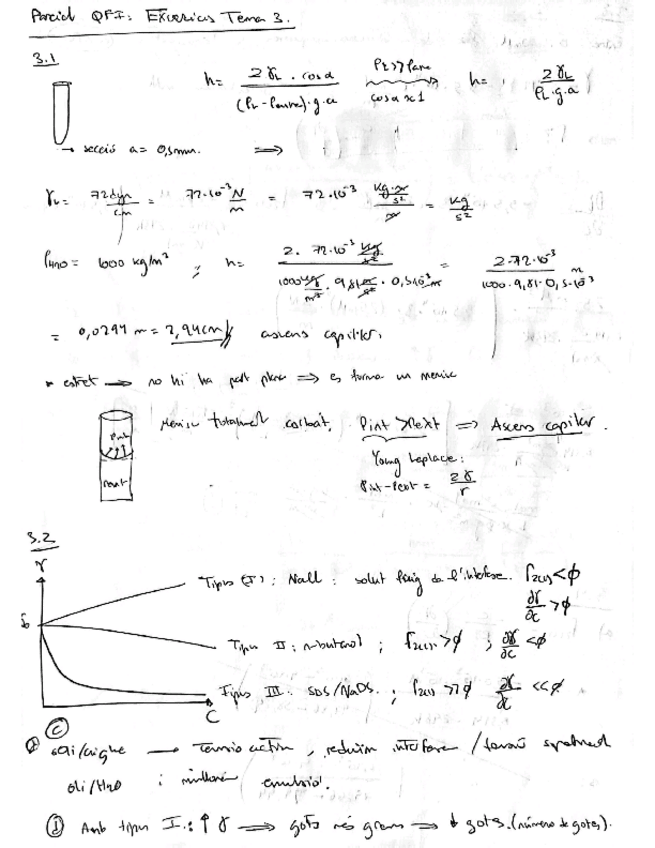 Parcial QFI: Exercicis Tema 3.
3.1
h = 2 γL · cosα / (ρL - ρaire)·g·a → ρL >> ρaire, cosα ≈ 1 → h = 2γL / ρL·g·a
→ secció a = 0,5mm. ⟹
γL = 72 dyn/cm = 72·10⁻³ N/m = 72·10⁻³ kg·m/s² / m = kg/s²
ρH2O = 1000 kg/m³ ; h = 2 · 72·10⁻³ kg/s² / 1000 kg/m³ · 9,81 m/s² · 0,5·10⁻³ m = 2·72·10⁻³ / 1000·9,81·0,5·10⁻³ m
= 0,0294 m = 2,94cm ascens capil·lar.
estret → no hi ha part plana ⟹ es forma un menisc
Menisc totalment corbat, Pint > Pext ⟹ Ascens capilar.
Pint
Young Laplace:
Pint - Pext = 2γ/r
3.2
γ
γ0
Tipus (I): NaCl : solut fuig de l'interfase. Γ2(1) < φ
∂γ/∂c > φ
Tipus II: n-butanol ; Γ2(1) > φ ; ∂γ/∂c < φ
Tipus III: SDS/NaDS. ; Γ2(1) >> φ ∂γ/∂c << φ
C
(C)
oli/aigua → Tensio actiu, reduïm interfase /
oli/H2O ; emulsió.
① Amb tipus I.: ↑ γ ⟹ gota més gran → ↓ gots. (número de gotes).